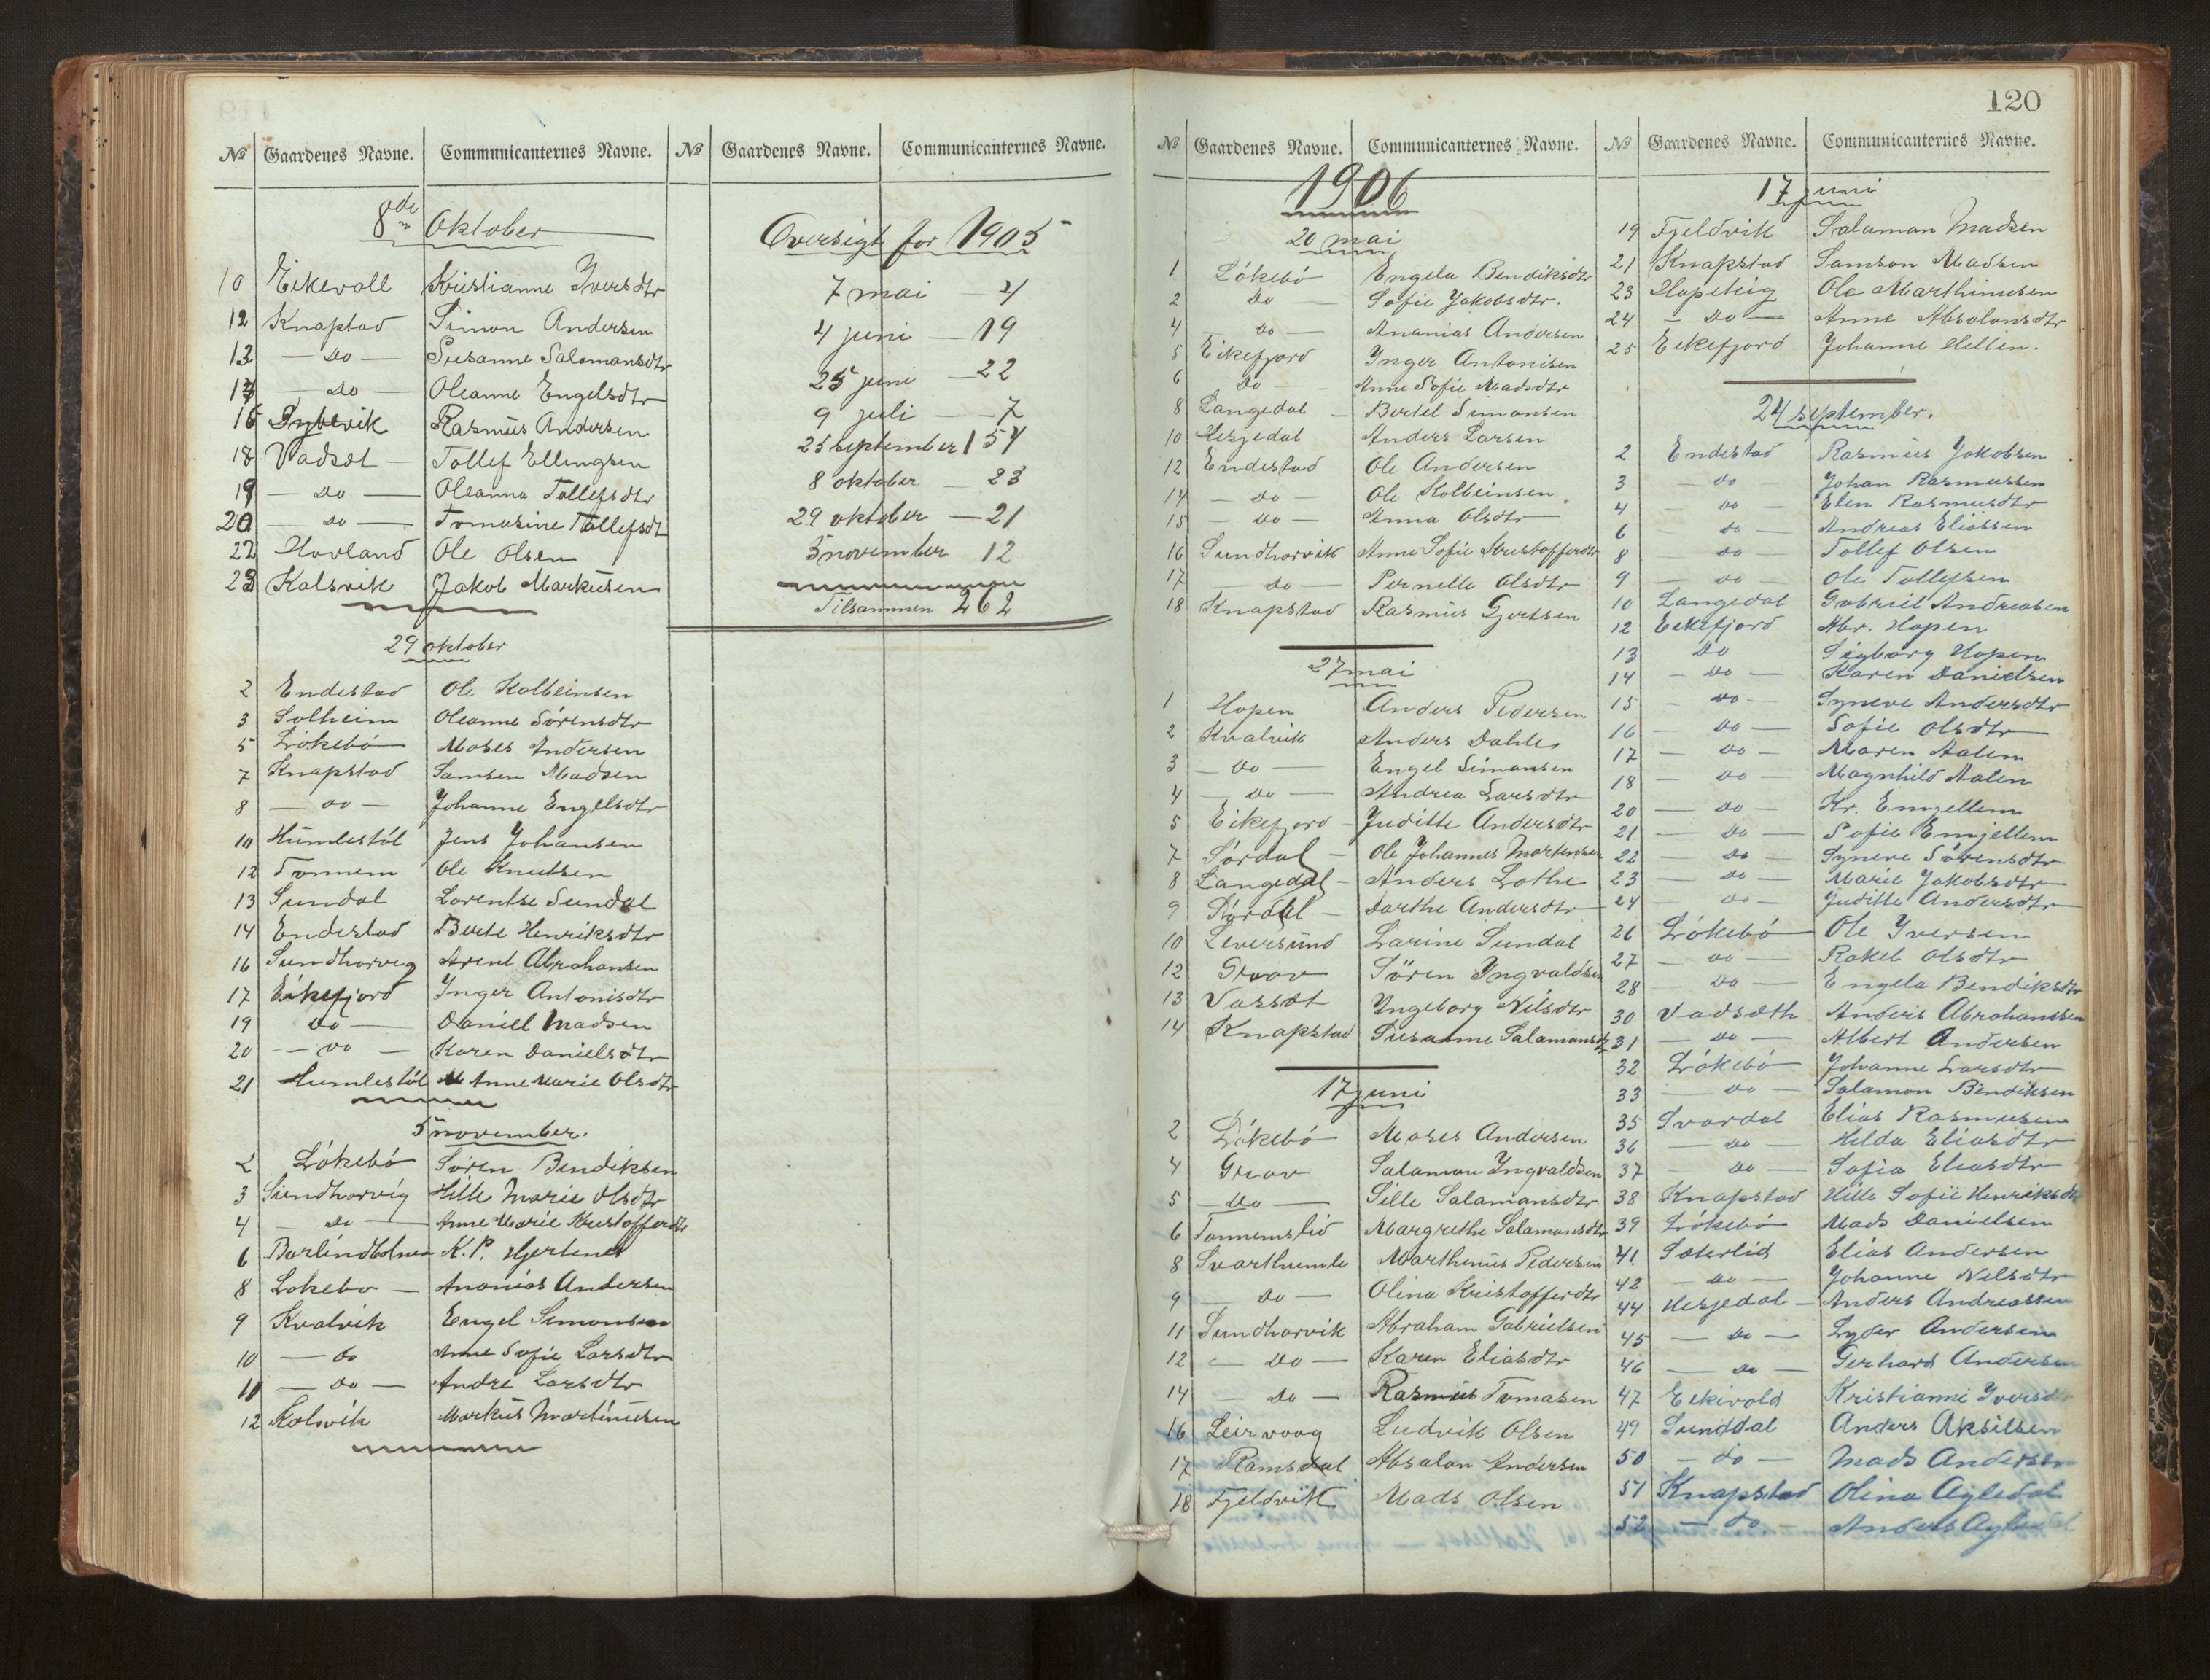 № Gaardenes Navne. Communicanternes Navne.
8de Oktober
10 Eikevoll Kristianne Iversdtr
12 Knapstad Simon Andersen
13 — do — Susanne Salamonsdtr
14 — do — Oleanne Engelsdtr
16 Dybevik Rasmus Andersen
18 Vadsøt — Tollef Ellingsen
19 — do — Oleanna Tollefsdtr
20 — do — Tomasine Tollefsdt
22 Hovland Ole Olsen
23 Kalsvik Jakob Markusen
29 oktober
2 Endestad Ole Kolbeinsen
3 Solheim Oleanne Sørensdtr
5 Løkebø Moses Andersen
7 Knapstad Samsen Madsen
8 — do — Johanne Engelsdtr
10 Humlestøl Jens Johansen
12 Tonnem Ole Knutsen
13 Sundal Lorentse Sundal
14 Endestad Berte Henriksdtr
16 Sundhorvig Arent Abrahansen
17 Eikefjord Inger Antonisdtr
19 do — Daniel Madsen
20 — do — Karen Danielsdtr
21 Humlestøl Anne Marie Olsdtr
5 november.
2 Løkebø Søren Bendiksen
3 Sundhorvig Hille Marie Olsdtr
4 — do — Anne Marie Kristofferdtr
6 K. P. Hjertenes
8 Løkebo — Ananias Andersen
9 Kvalvik Engel Simonsen
10 — do Anne Sofie Larsdtr
11 — do — Andre Larsdtr
12 Kolsvik Markus Martinusen
№ Gaardenes Navne. Communicanternes Navne.
Oversigt for 1905
7 mai — 4
4 juni — 19
25 juni — 22
9 juli — 7
25 september 154
8 oktober — 23
29 oktober — 21
5 november 12
Tilsammen 262
120
№ Gaardenes Navne. Communicanternes Navne.
1906
20 mai
1 Løkebø Engela Bendiksdtr
2 do — Sofie Jakobsdtr.
4 — do — Ananias Andersen
5 Eikefjord Inger Antonisen
6 do — Anne Sofie Madsdtr
8 Langedal — Bertel Simonsen
10 Hesjedal Anders Larsen
12 Endestad Ole Andersen
14 — do — Ole Kolbeinsen
15 — do — Anna Olsdtr
16 Sundhorvik Anne Sofie Kristofferdtr
17 do — Pernelle Olsdtr
18 Knapstad Rasmus Gjertsen
27 mai
1 Hopen Anders Pedersen
2 Kvalvik Anders Dahle
3 — do — Engel Simonsen
4 — do — Andrea Larsdtr
5 Eikefjord — Judithe Andersdtr
7 Sørdal — Ole Johannes Mortensen
8 Langedal — Anders Lothe
9 Sørdal — Dorthe Andersdtr
10 Leversund Larine Sundal
12 Grov Søren Ingvaldsen
13 Vassøt Ingeborg Nilsdtr
14 Knapstad Susanne Salamonsdtr
17 juni
2 Løkebø Moses Andersen
4 Grov Salamon Ingvaldsen
5 — do — Sille Salamonsdtr
6 Tonnemslid Margrethe Salamonsdtr
8 Svarthumle Marthinus Pedersen
9 — do — Olina Kristofferdtr
11 Sundhorvik Abraham Gabrielsen
12 — do — Karen Eliasdtr
14 — do — Rasmus Tomasen
16 Leirvoog Ludvik Olsen
17 Ramsdal Absalon Andersen
18 Fjeldvik Mads Olsen
№ Gaardenes Navne. Communicanternes Navne.
17 juni
19 Fjeldvik Salaman Madsen
21 Knapstad Samson Madsen
23 Hopeteig Ole Marthinusen
24 — do — Anne Absalonsdtr
25 Eikefjord Johanne Hellen.
24 september.
2 Endestad Rasmus Jakobsen
3 — do Johan Rasmussen
4 — do — Elen Rasmusdtr
6 do — Andreas Eliassen
8 — do — Tollef Olsen
9 — do — Ole Tollefsen
10 Langedal Gabriel Andreasen
12 Eikefjord Abr. Hopen
13 do Sigborg Hopen
14 — do — Karen Danielsen
15 — do — Syneve Andersdtr
16 — do — Sofie Olsdtr
17 — do — Maren Aalen
18 — do — Magnhild Aalen
20 — do — Kr. Emjellem
21 — do — Sofie Emjellem
22 — do — Syneve Sørensdtr
23 — do — Marie Jakobsdtr
24 — do — Judithe Andersdtr
26 Løkebø Ole Iversen
27 — do — Rakel Olsdtr
28 — do — Engela Bendiksdtr
30 Vadsøth Anders Abrahamsen
31 — do — Albert Andersen
32 Løkebø Johanne Larsdtr
33 — do — Salamon Bendiksen
35 Svardal Elias Rasmusen
36 — do — Hilda Eliasdtr
37 — do — Sofia Eliasdtr
38 Knapstad Hille Sofie Henriksdtr
39 Løkebø Mads Danielsen
41. Sæterlid Elias Andersen
42 — do — Johanne Nilsdtr
44 Hesjedal — Anders Andreassen
45 — do — Lyder Andersen
46 — do — Gerhard Andersen
47 Eikevold Kristianne Iversdtr
49 Sunddal Anders Aksilsen
50 — do — Mads Andersen
51 Knapstad Olina Agledal
52 — do — Anders Agledal